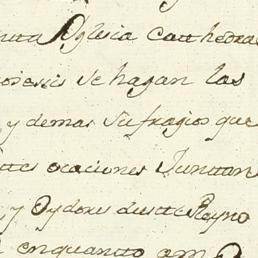 Yglesia cathedral
se hagan las
y demas sufragios que
oraciones Juntan
y Oydores deste Reyno
enquanto am